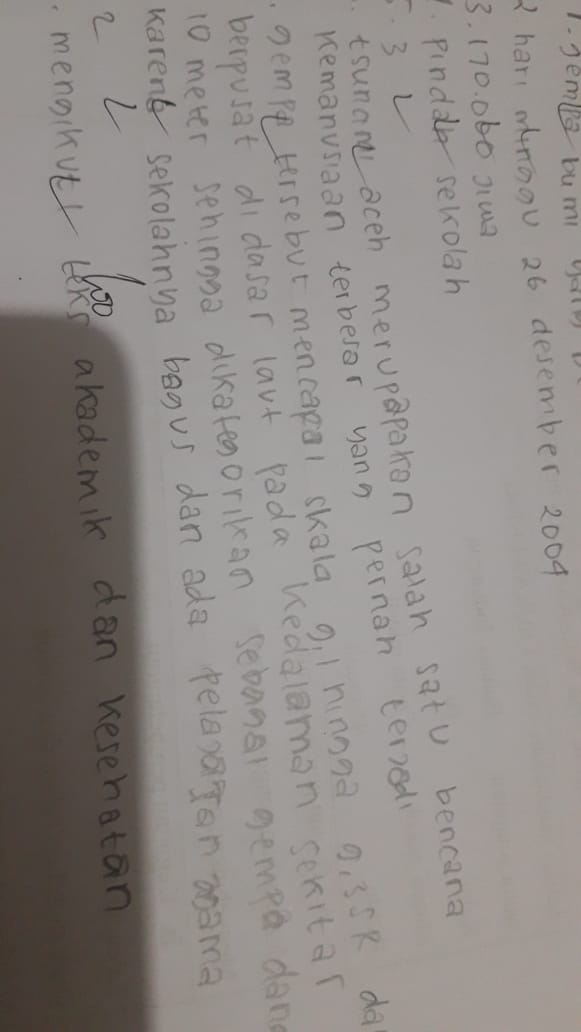 1. gempa bumi yang
2 hari minggu 26 desember 2004
3. 170.000 jiwa
. pindah sekolah
. 3
. tsunami aceh merupapakan salah satu bencana
kemanusiaan terbesar yang pernah terjadi
. gempa tersebut mencapai skala 9,1 hingga 9,3 SR da
berpusat di dasar laut pada kedalaman sekitar
10 meter sehingga dikategorikan sebagai gempa dang
karena sekolahnya bagus dan ada pelajaran agama
2
. mengikuti teks akademik dan kesehatan
100